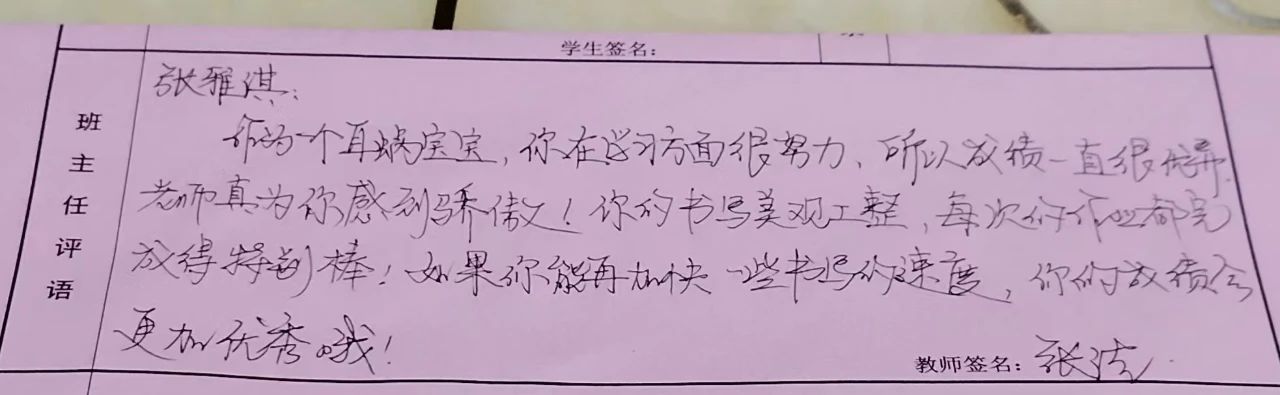 学生签名：
班主任评语
张雅淇：
作为一个耳蜗宝宝，你在学习方面很努力、所以成绩一直很优异，
老师真为你感到骄傲！你的书写美观工整，每次的作业都完
成得特别棒！如果你能再加快一些书写的速度，你的成绩会
更加优秀哦！
教师签名：张洁